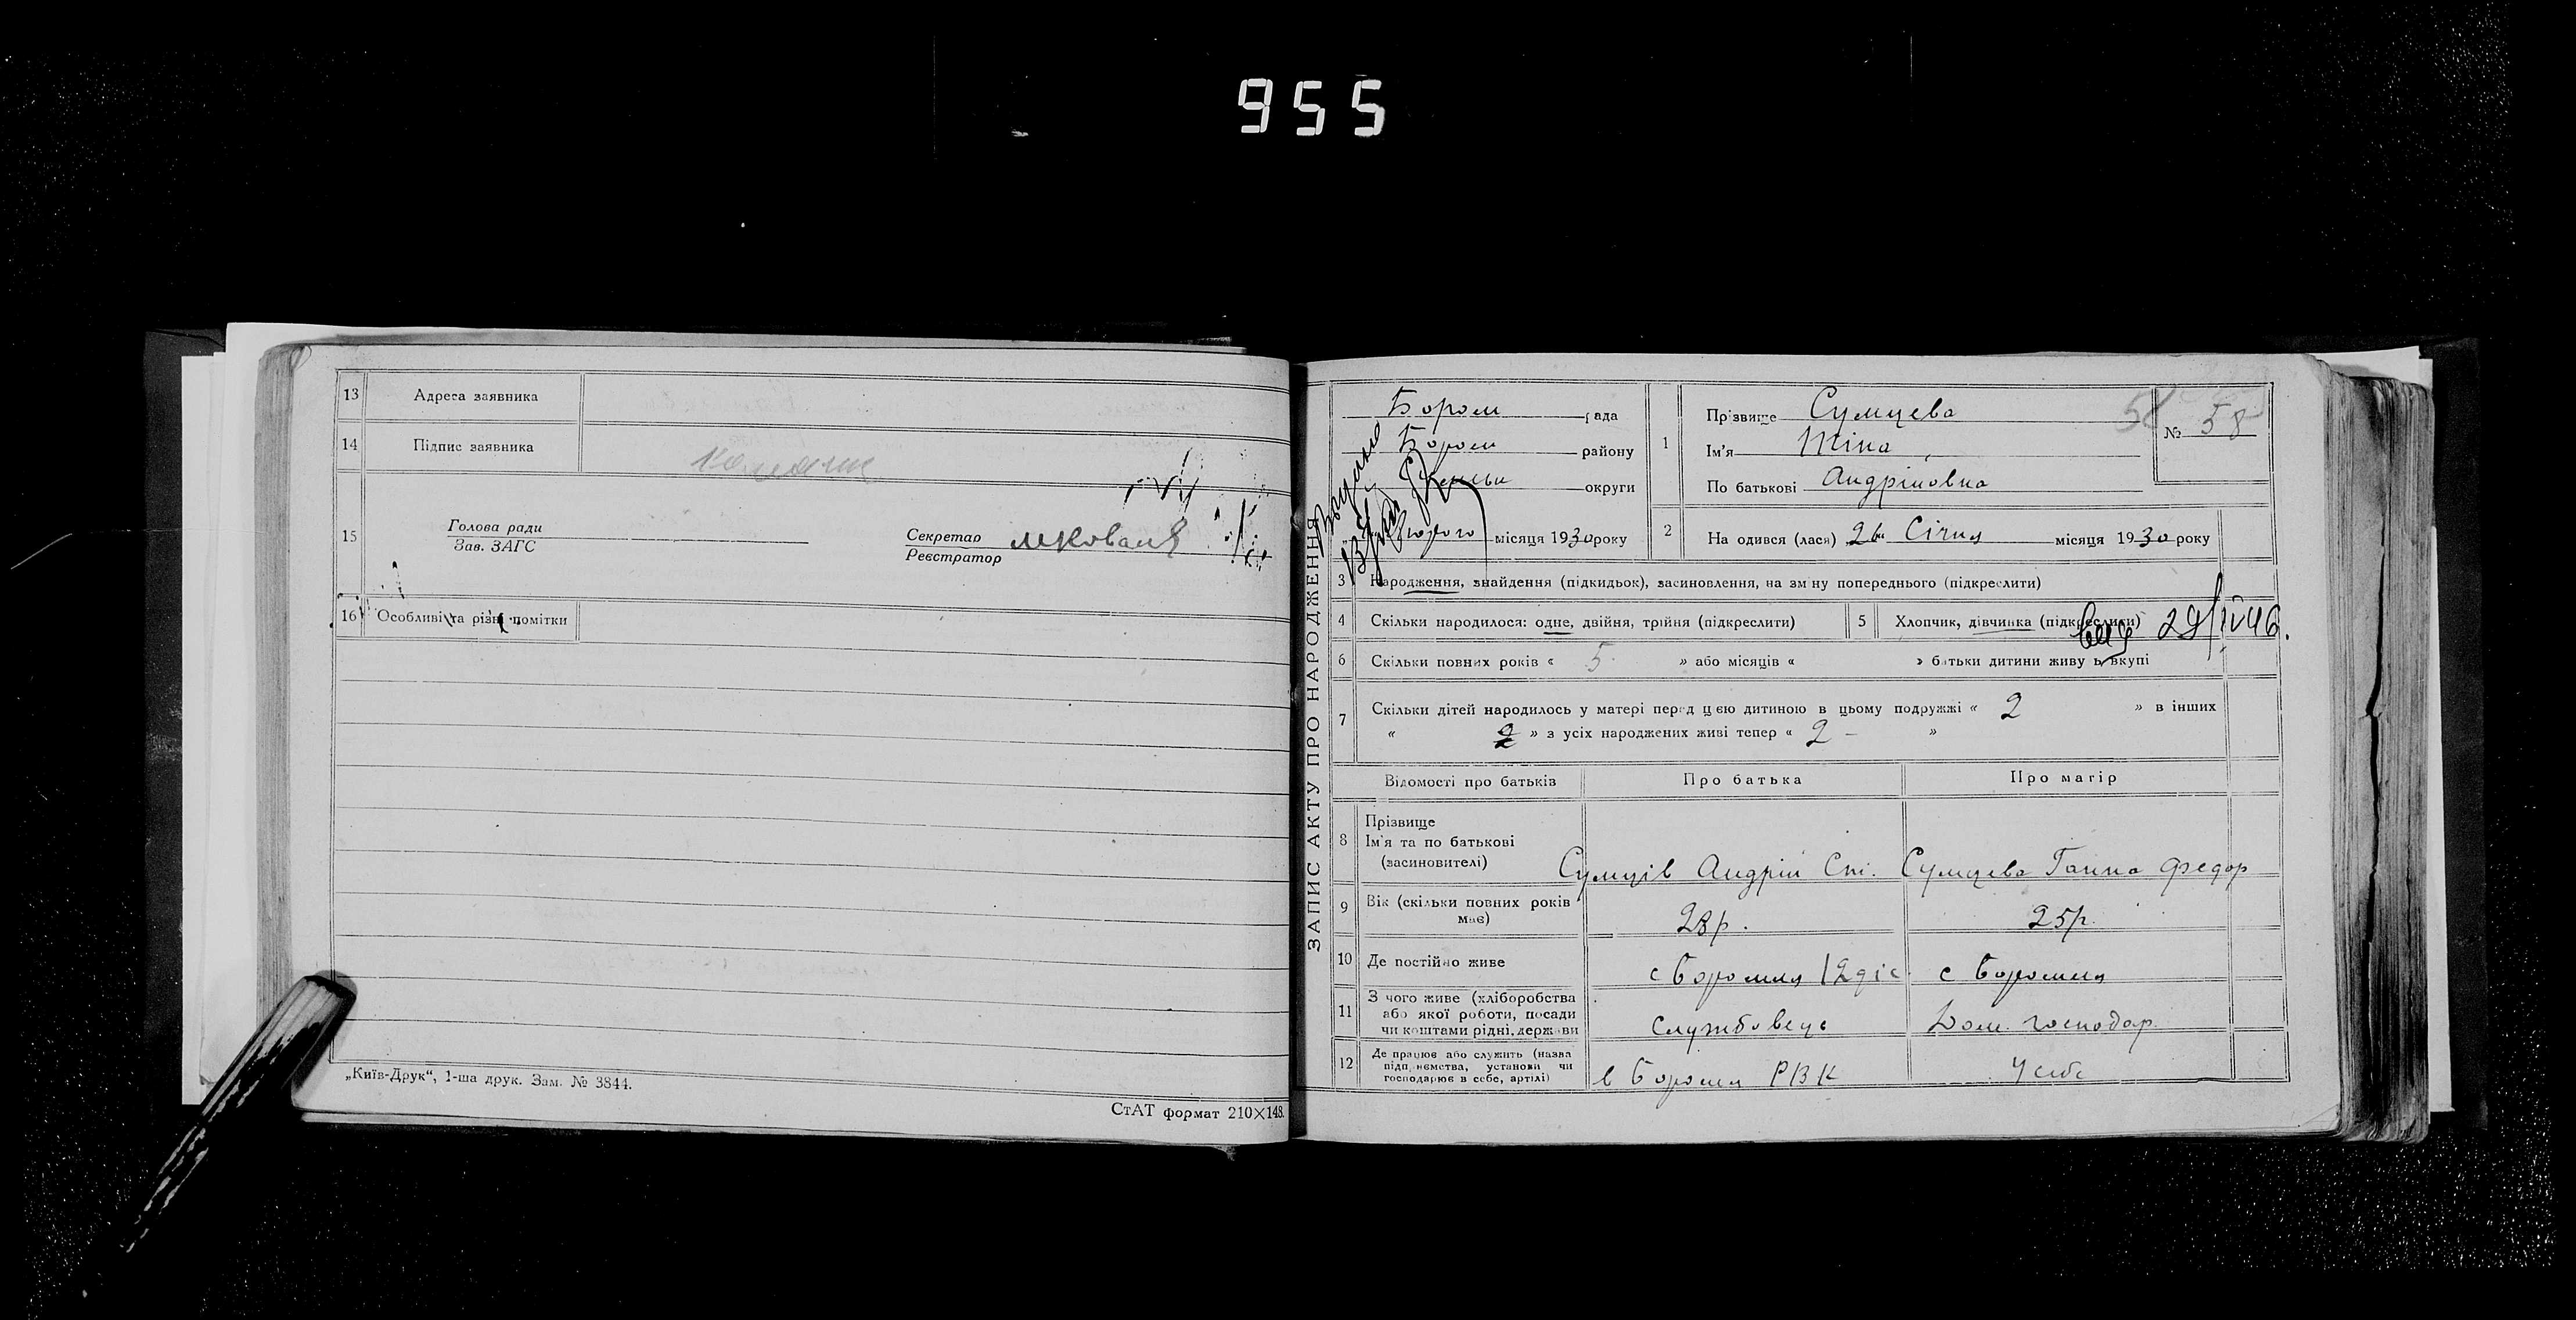 955
13 Адреса заявника
14 Підпис заявника
15 Голова ради
Зав. ЗАГС
Секретар
Реєстратор
16 Особливі та різні помітки
„Київ-Друк“, 1-ша друк. Зам. № 3844.
СтАТ формат 210×148.
ЗАПИС АКТУ ПРО НАРОДЖЕННЯ
Бором рада
Бором району
округи
місяця 1930 року
1 Прізвище Сумцева
Ім'я Ніна
По батькові Андріїовна
№ 58
58
2 На одився (лася) 26 Січня місяця 1930 року
3 Народження, знайдення (підкидьок), засиновлення, на зміну попереднього (підкреслити)
4 Скільки народилося: одне, двійня, трійня (підкреслити)
5 Хлопчик, дівчинка (підкреслити)
29/IV 46.
6 Скільки повних років « 5 » або місяців « » батьки дитини живу ь вкупі
7 Скільки дітей народилось у матері перед цею дитиною в цьому подружжі « 2 » в інших
« » з усіх народжених живі тепер « 2 – »
Відомості про батьків Про батька Про матір
8 Прізвище
Ім'я та по батькові
(засиновителі)
Сумців Андрій Сумцева Ганна Федор
9 Вік (скільки повних років
має)
28 р. 25 р.
10 Де постійно живе с Боромля с Боромля
11 З чого живе (хліборобства
або якої роботи, посади
чи коштами рідні, держави
Службовець Дом. господар.
12 Де працює або служить (назва
підприємства, установи чи
господарює в себе, артілі)
в Боромл РВК У себе